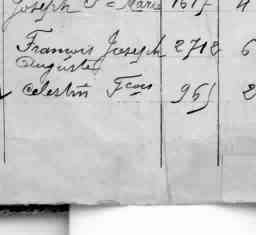 Joseph Jn Marie 1615 4
François Joseph 2712 6
Auguste
Celestin Fcois 965 2